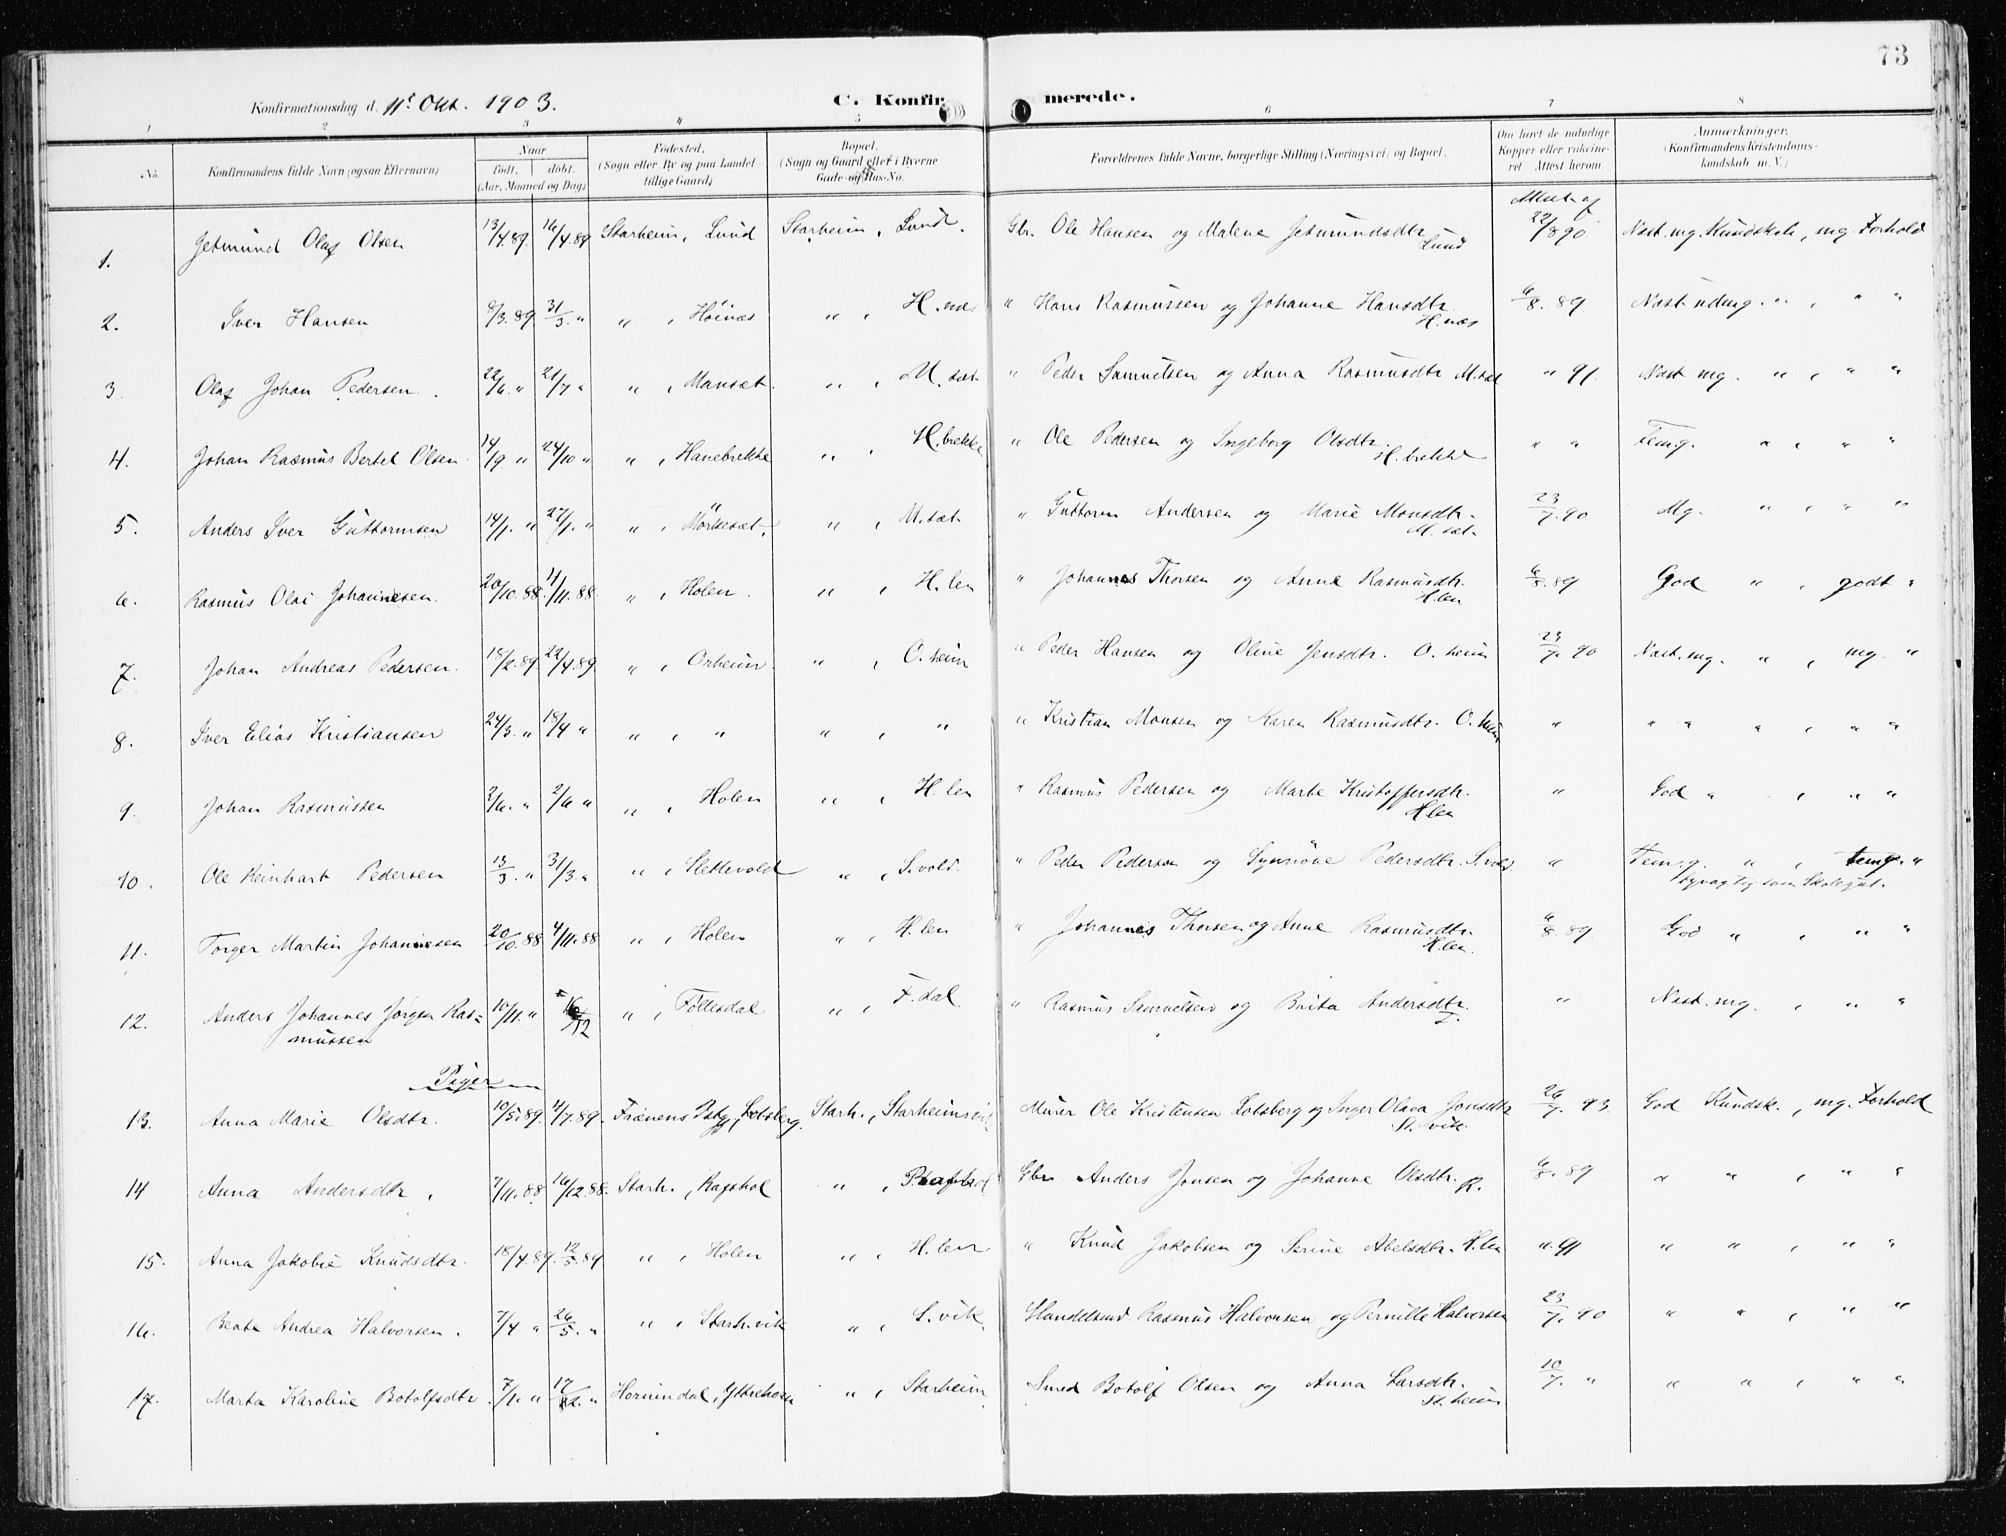 73
Konfirmationsdag d. 11t Okt. 1903. C. Konfir merede.
1 2 3 4 5 6 7 8
No. Konfirmandens fulde Navn (ogsaa Efternavn) Naar født. døbt. (Aar, Maaned og Dag) Fødested. (Sogn eller By og paa Landet tillige Gaard) Bopæl. (Sogn og Gaard eller i Byerne Gade- og Hus-No. Forældrenes fulde Navne, borgerlige Stilling (Næringsvei) og Bopæl. Om havt de naturlige Kopper eller vaccineret Attest herom. Anmærkninger. (Konfirmandens Kristendomskundskab m. V.)
1. Jetmund Olaf Olsen 13/4.89 16/4.89 Starheim, Lund Starheim, Lund. Gbr. Ole Hansen og Malene Jetmundsdtr. Lund Attest af 22/8 90 Næst. mg. Kundskab, mg. Forhold
2. Iver Hansen 9/3.89 31/3. " " , Höinæs " , H.næs " Hans Rasmussen og Johanne Hansdtr. H.næs 6/8. 89. Næst udmg. " , " "
3. Olaf Johan Pedersen. 22/6. " 21/7 " " , Mansæt. " , M.sæt. " Peder Samuelsen og Anna Rasmusdtr M.sæt " 91. Næst mg. " , " "
4. Johan Rasmus Bertel Olsen. 14/9 " 24/10 " " , Hanebrekke " , H.brekke " Ole Pedersen og Ingeborg Olsdtr. H.brekke " " Tem.g. " , " "
5. Anders Iver Guttormsen 14/1. " 27/1. " " , Mörkesæt. " , M.sæt. " Guttorm Andersen og Marie Monsdtr. M.sæt. 23/7.90 Mg. " , " "
6. Rasmus Olai Johannesen. 20/10.88. 4/11.88. " , Holen. " , H.len " Johannes Thorsen og Anne Rasmusdtr. H.len 6/8.89 God " , godt "
7. Johan Andreas Pedersen. 18/2.89 22/4.89 " , Orheim. " , O.heim " Peder Hansen og Oline Jensdtr. O.heim 23/7. 90 Næst. mg. " , mg. "
8. Iver Elias Kristiansen 24/3. " 18/4 " " , " " , " " Kristian Monsen og Karen Rasmusdtr. O.heim " " " " , " "
9. Johan Rasmussen 2/6. " 2/6 " " , Holen " , H.len " Rasmus Pedersen og Marte Kristoffersdtr. H.len " God " , " "
10. Ole Reinhart Pedersen 13/3. " 31/3. " " , Slettevold " , S.vold. " Peder Pedersen og Synnöve Pedersdtr. S.vold. " Tem.g. " , temg. "
11. Torger Martin Johannesen 20/10.88 4/11.88 " , Holen " , H.len " Johannes Thorsen og Anne Rasmusdtr. H.len. 6/8.89. God " , " "
12. Anders Johannes Jørgen Ras= 10/11. " 16/12 " , Föllesdal " , F.dal. " Rasmus Samuelsen og Brita Andersdtr. F. " Næst. mg. , " "
mussen
Piger
13. Anna Marie Olsdtr. 10/5.89. 4/7.89. Lotsberg. Stark., Starheimsvik Murer Ole Kristensen Lotsberg og Inger Olava Jonsdtr St.vik. 26/7. 93. God Kundsk., mg. Forhold
14 Anna Andersdtr. 7/11.88 16/12.88. Starh., Rafshol " , Rafshol Gbr. Anders Jonsen og Johanne Olsdtr. R. 6/8.89 " " , " "
15. Anna Jakobie Knudsdtr. 18/4.89. 12/5.89 " , Holen " , H.len " Knud Jakobsen og Serine Abelsdtr. H.len " 91 " " , " "
16. Beate Andrea Halvorsen. 7/4 " 26/5. " " , Starh.vik " , S.vik. Handelsmd. Rasmus Halvorsen og Pernille Halvorsen 23/7. 90 " " , " "
17. Marta Karoline Botolfsdtr. 7/1. " 17/2. " Hornindal, Ytrehorn " , Starheim Smed Botolf Olsen og Anna Larsdtr. St.heim 10/7. " " " , " "